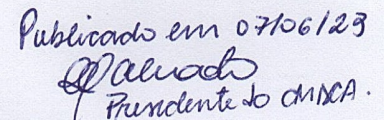 Publicado em 07/06/23
Presidente do CMDCA.